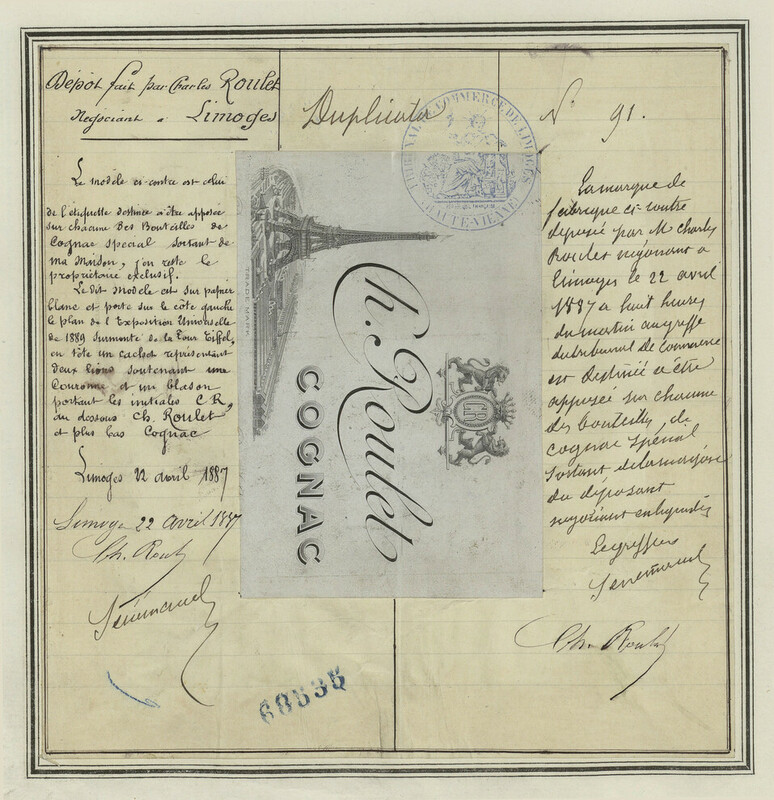 Dépot fait par Charles Roulet
Négociant à Limoges
Duplicata
N° 91.
TRIBUNAL DE COMMERCE DE LIMOGES
HAUTE-VIENNE
Le modèle ci contre est celui
de l'étiquette destinée à être apposée
sur chacune des Bouteilles de
Cognac special sortant de
ma Maison, j'en reste le
propriétaire exclusif.
Le dit modèle est sur papier
blanc et porte sur le côté gauche
le plan de l'Exposition Universelle
de 1889 surmonté de la Tour Eiffel,
en tête un cachet représentant
deux lions soutenant une
Couronne et un blason
portant les initiales C R,
au dessous Ch. Roulet
et plus bas Cognac
Limoges 22 avril 1887
Limoges 22 avril 1887
Ch. Roulet
TRADE MARK
CR
Ch. Roulet
COGNAC
La marque de
fabrique ci-contre
déposée par M Charles
Roulet négociant à
Limoges le 22 avril
1887 à huit heures
du matin au greffe
du tribunal de commerce
est destinée à être
apposée sur chacune
des bouteilles de
cognac spécial
sortant de la maison
du déposant
négociant en
Le greffier
Ch. Roulet
68535